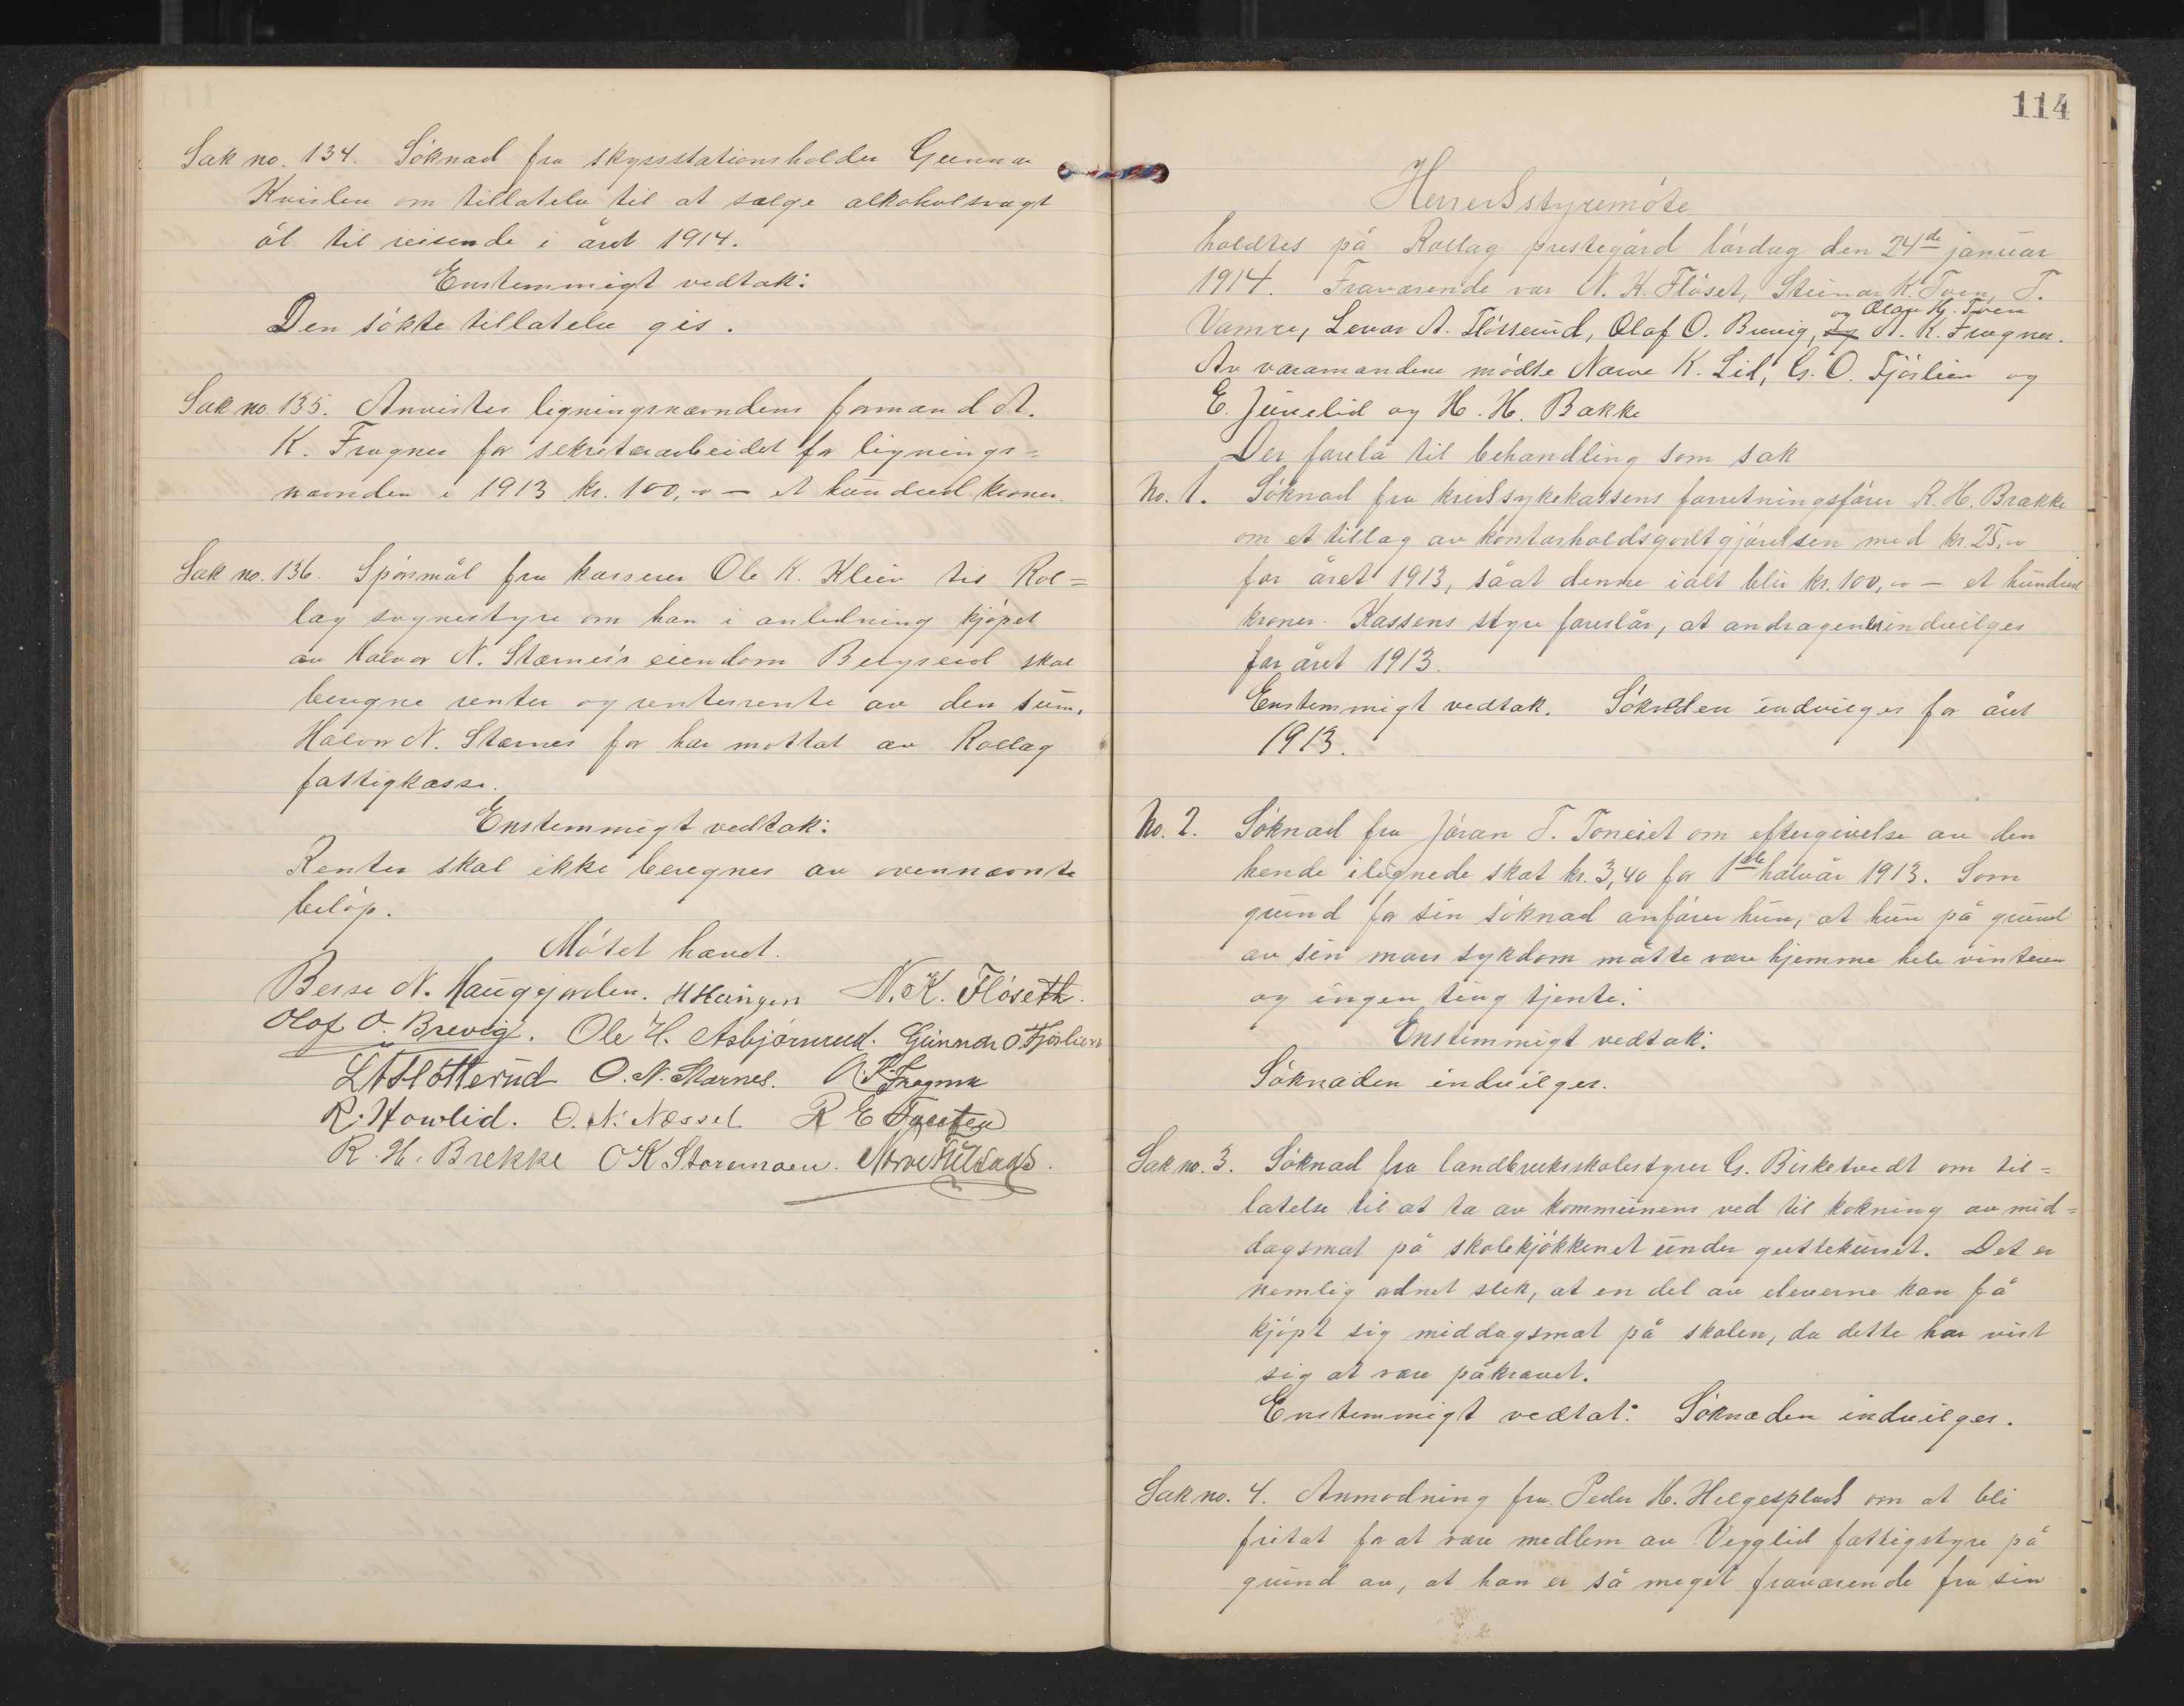 Sak no. 134. Söknad fra skysstationsholder Gunnar
Kvislen om tillatelse til at sælge alkoholsvagt
öl til reisende i året 1914.
Enstemmigt vedtak:
Den sökte tillatelse gis.
Sak no. 135. Anvistes ligningsnævndens formand A.
K. Fragner for sekretærarbeidet for lignings=
nævnden i 1913 kr. 100,00 — et hundred kroner.
Sak no. 136. Spörsmål fra kasserer Ole K. Kleiv til Rol=
lag sognestyre om han i anledning kjöpet
av Halvor N. Stærnes's eiendom skal
beregne renter og rentersrente av den sum,
Halvor N. Stærnes for har mottat av Rollag
fattigkasse.
Enstemmigt vedtak:
Renter skal ikke beregnes av ovennævnte
belöp.
Mötet hævet.
N. Haugjorden. N. K. Flöseth.
Olaf O. Brevig. Ole H. Asbjörnrud. Gunnar O Fjöslien
O. N. Stærnes. A. K. Fragner
R. Howlid. O. N. Næssel. R E
R. H. Brekke O K Storemoen.
114
Herredsstyremöte
holdtes på Rollag prestegård lördag den 24de januar
1914. Fraværende var N. K. Flöset, Steinar K. Tven, T.
og Olav H. Tven
Vamre, Levor A. Slötterud, Olaf O. Brevig, og A. K. Fragner.
Av varamændene mödte Narve K. Lid, G. O. Fjöslien og
E. Juvelid og H. H. Bakke
Der forelå til behandling som sak
No. 1. Söknad fra kredssykekassens forretningsförer R. H. Brække
om et tillæg av kontorholdsgodtgjörelsen med kr. 25,00
for året 1913, såat denne ialt blir kr. 100,00 — et hundred
kroner. Kassens styre foreslår, at andragendet indvilges
for året 1913.
Enstemmigt vedtak. Söknaden indvilges for året
1913.
No. 2. Söknad fra Jöran T. Toneiet om eftergivelse av den
hende ilignede skat kr. 3,40 for 1ste halvår 1913. Som
grund for sin söknad anförer hun, at hun på grund
av sin mans sykdom måtte være hjemme hele vinteren
og ingen ting tjente.
Enstemmigt vedtak:
Söknaden indvilges.
Sak no. 3. Söknad fra landbruksskolestyrer G. Birketvedt om til=
latelse til at ta av kommunens ved til kokning av mid=
dagsmat på skolekjökkenet under guttekurset. Det er
nemlig ordnet slik, at en del av eleverne kan få
kjöpt sig middagsmat på skolen, da dette har vist
sig at være påkrævet.
Enstemmigt vedtat: Söknaden indvilges.
Sak no. 4. Anmodning fra Peder H. Helgesplads om at bli
fritat for at være medlem av Vegglid fattigstyre på
grund av, at han er så meget fraværende fra sin